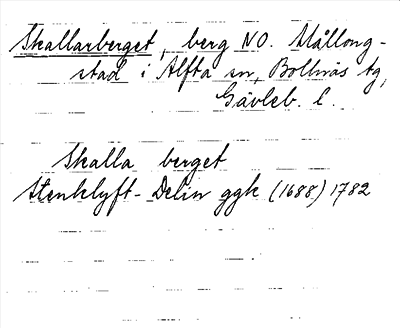 Skallarberget, berg NO. Mållong-
stad i Alfta sn, Bollnäs tg,
Gävleb. l.
Skalla berget
Stenklyft- Delin ggk (1688) 1782